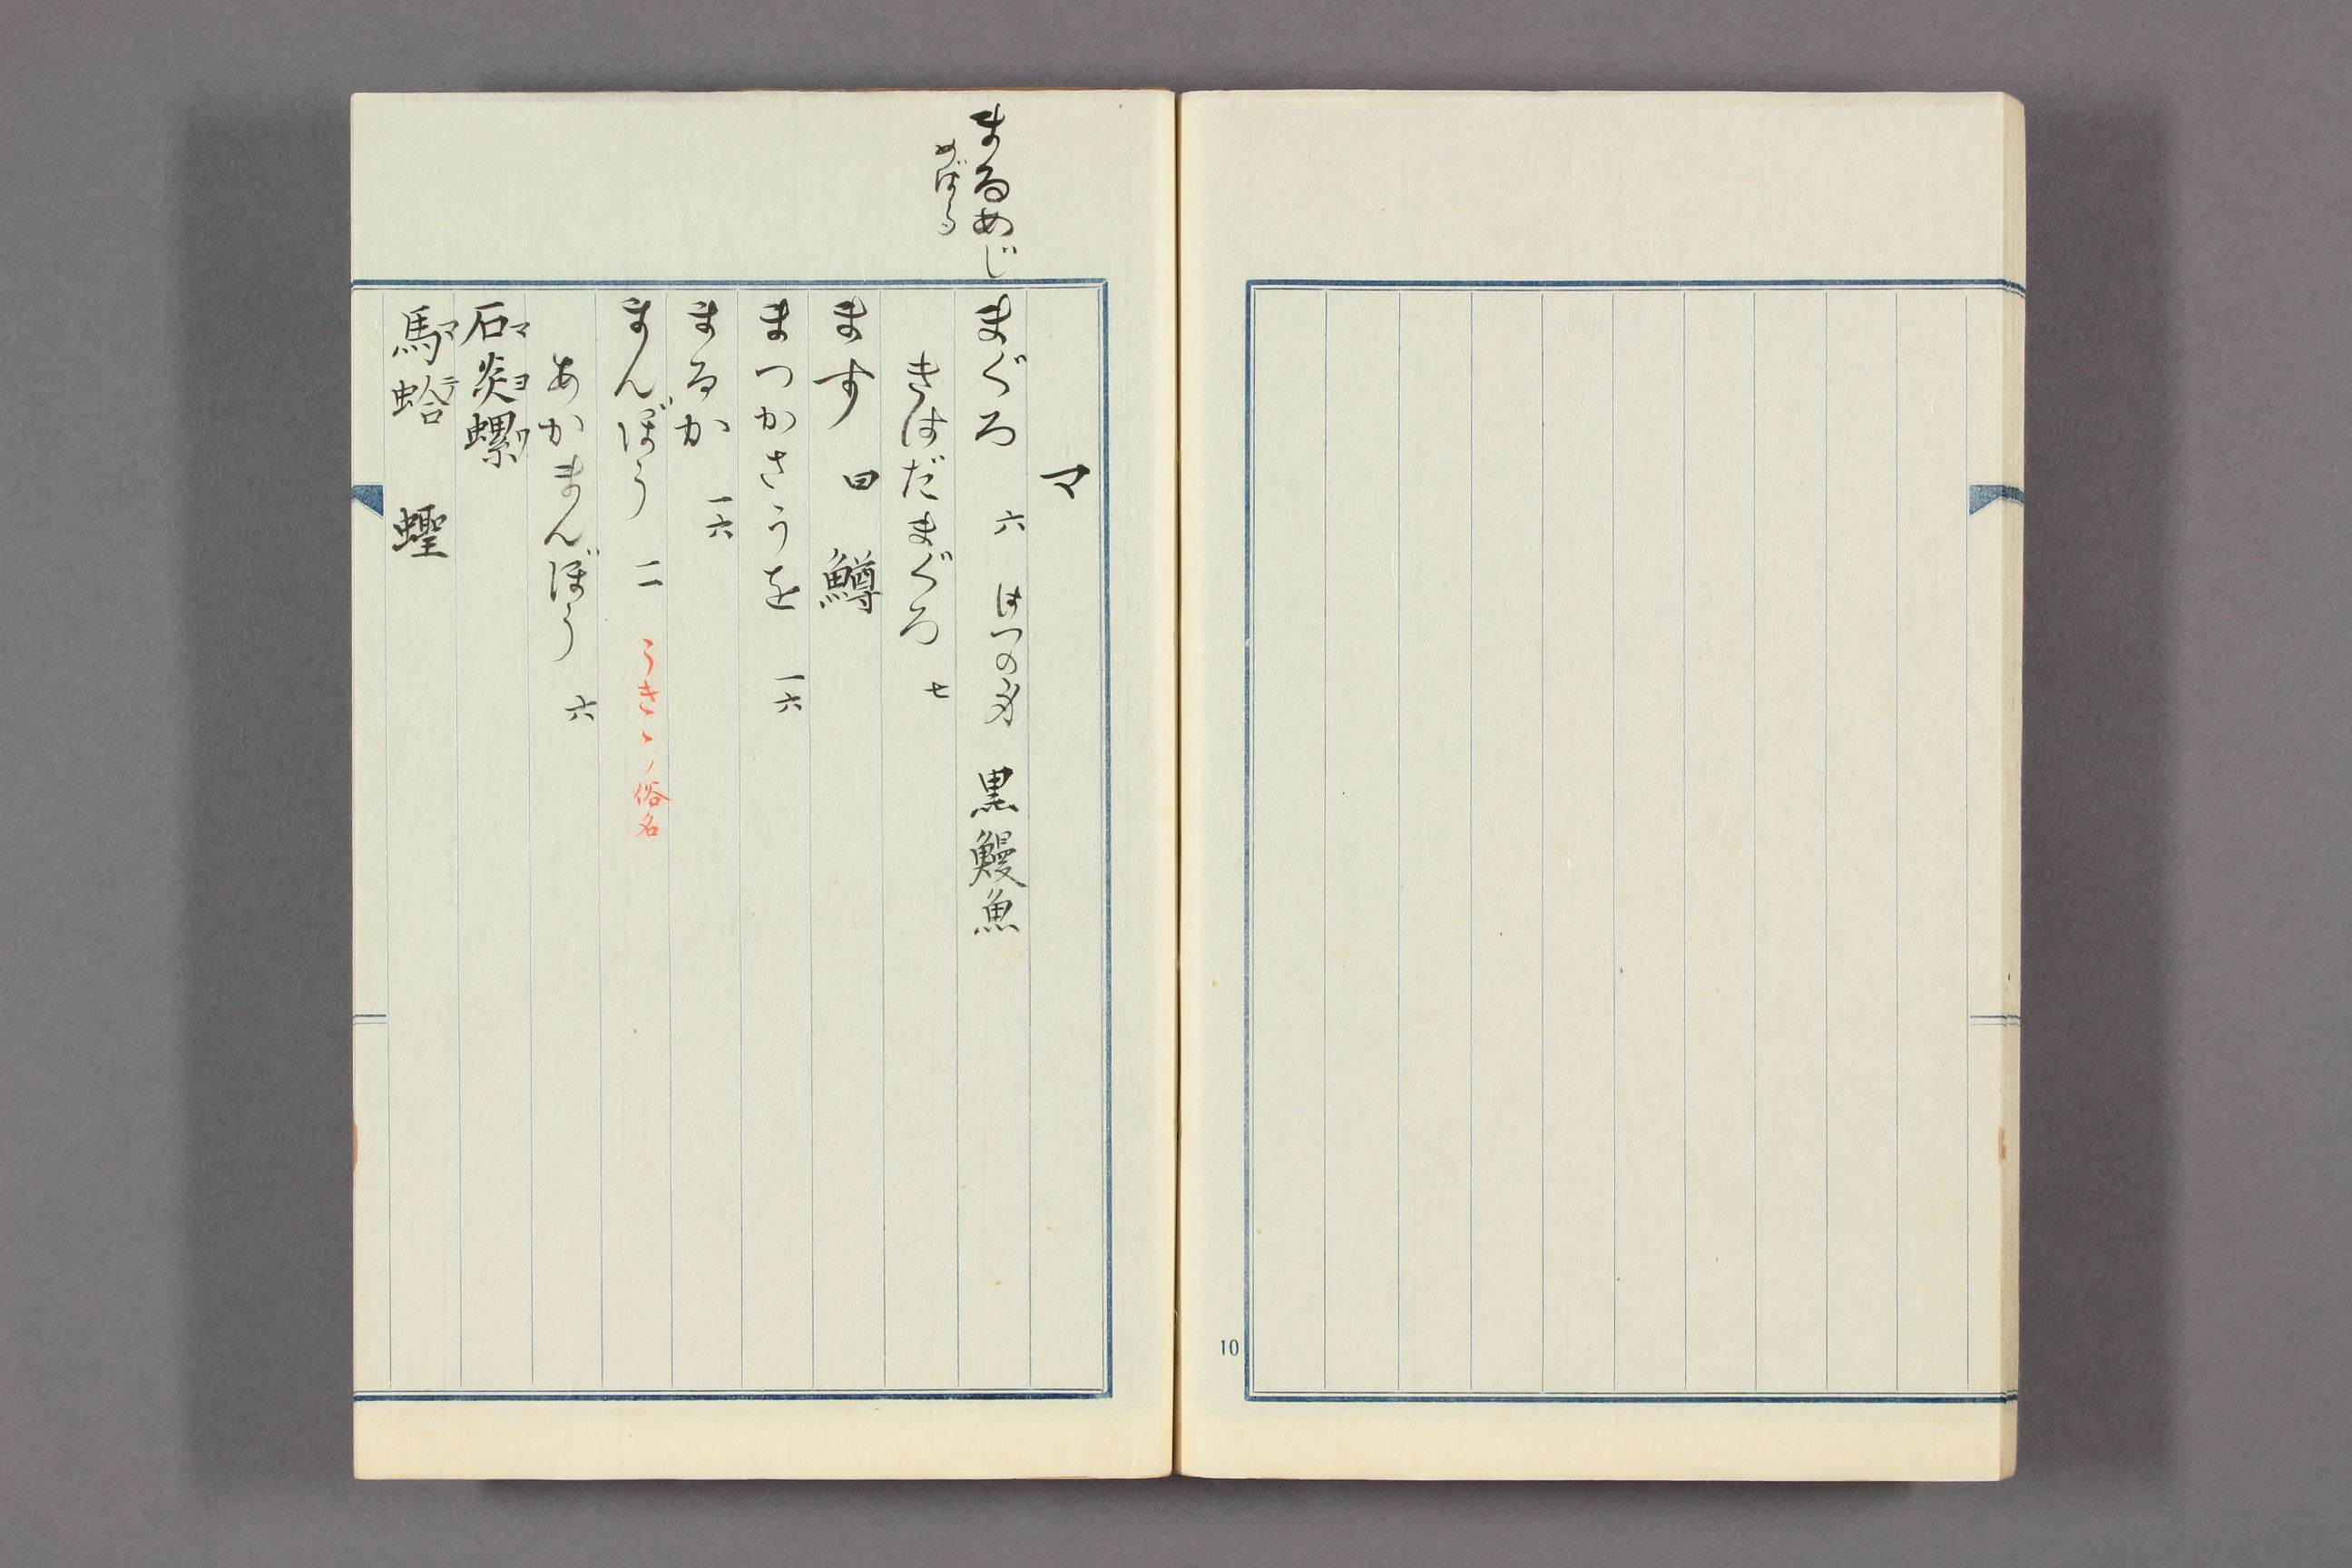 10
まるめじ
めばる
マ
まぐろ 六 はつの身 黒鰻魚
きはだまぐろ 七
ます 曰 鱒
まつかさうを 一六
まるか 一六
まんぼう 二 うきゝノ俗名
あかまんぼう 六
石炎螺 マヨワ
馬蛤 マテ 蟶